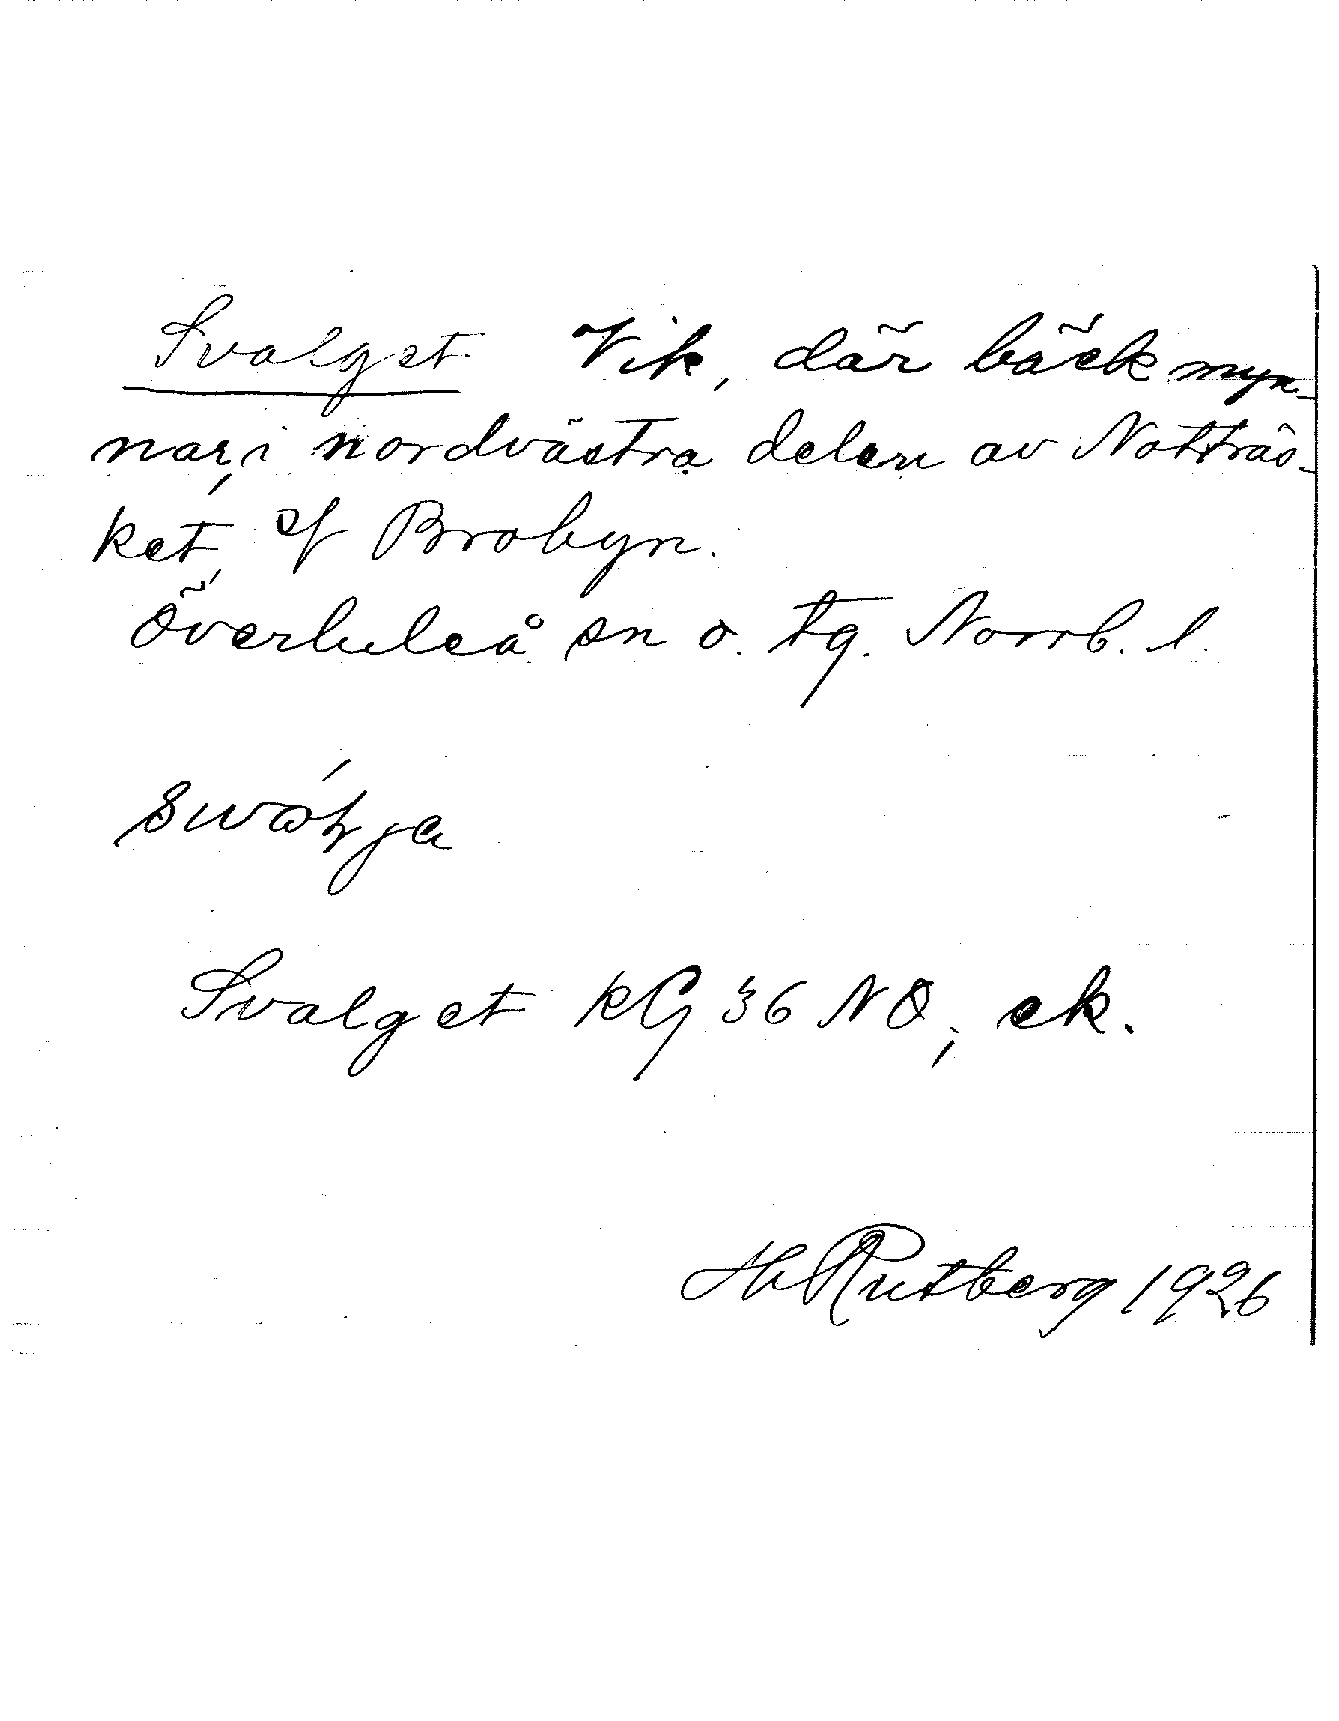 Svalget. Vik, där bäck myn-
nar, i nordvästra delen av Notträs-
ket, Brobyn.
Överluleå sn o. tg. Norrb. l.
Svalget KG 36 NO, ek.
H Rutberg 1926